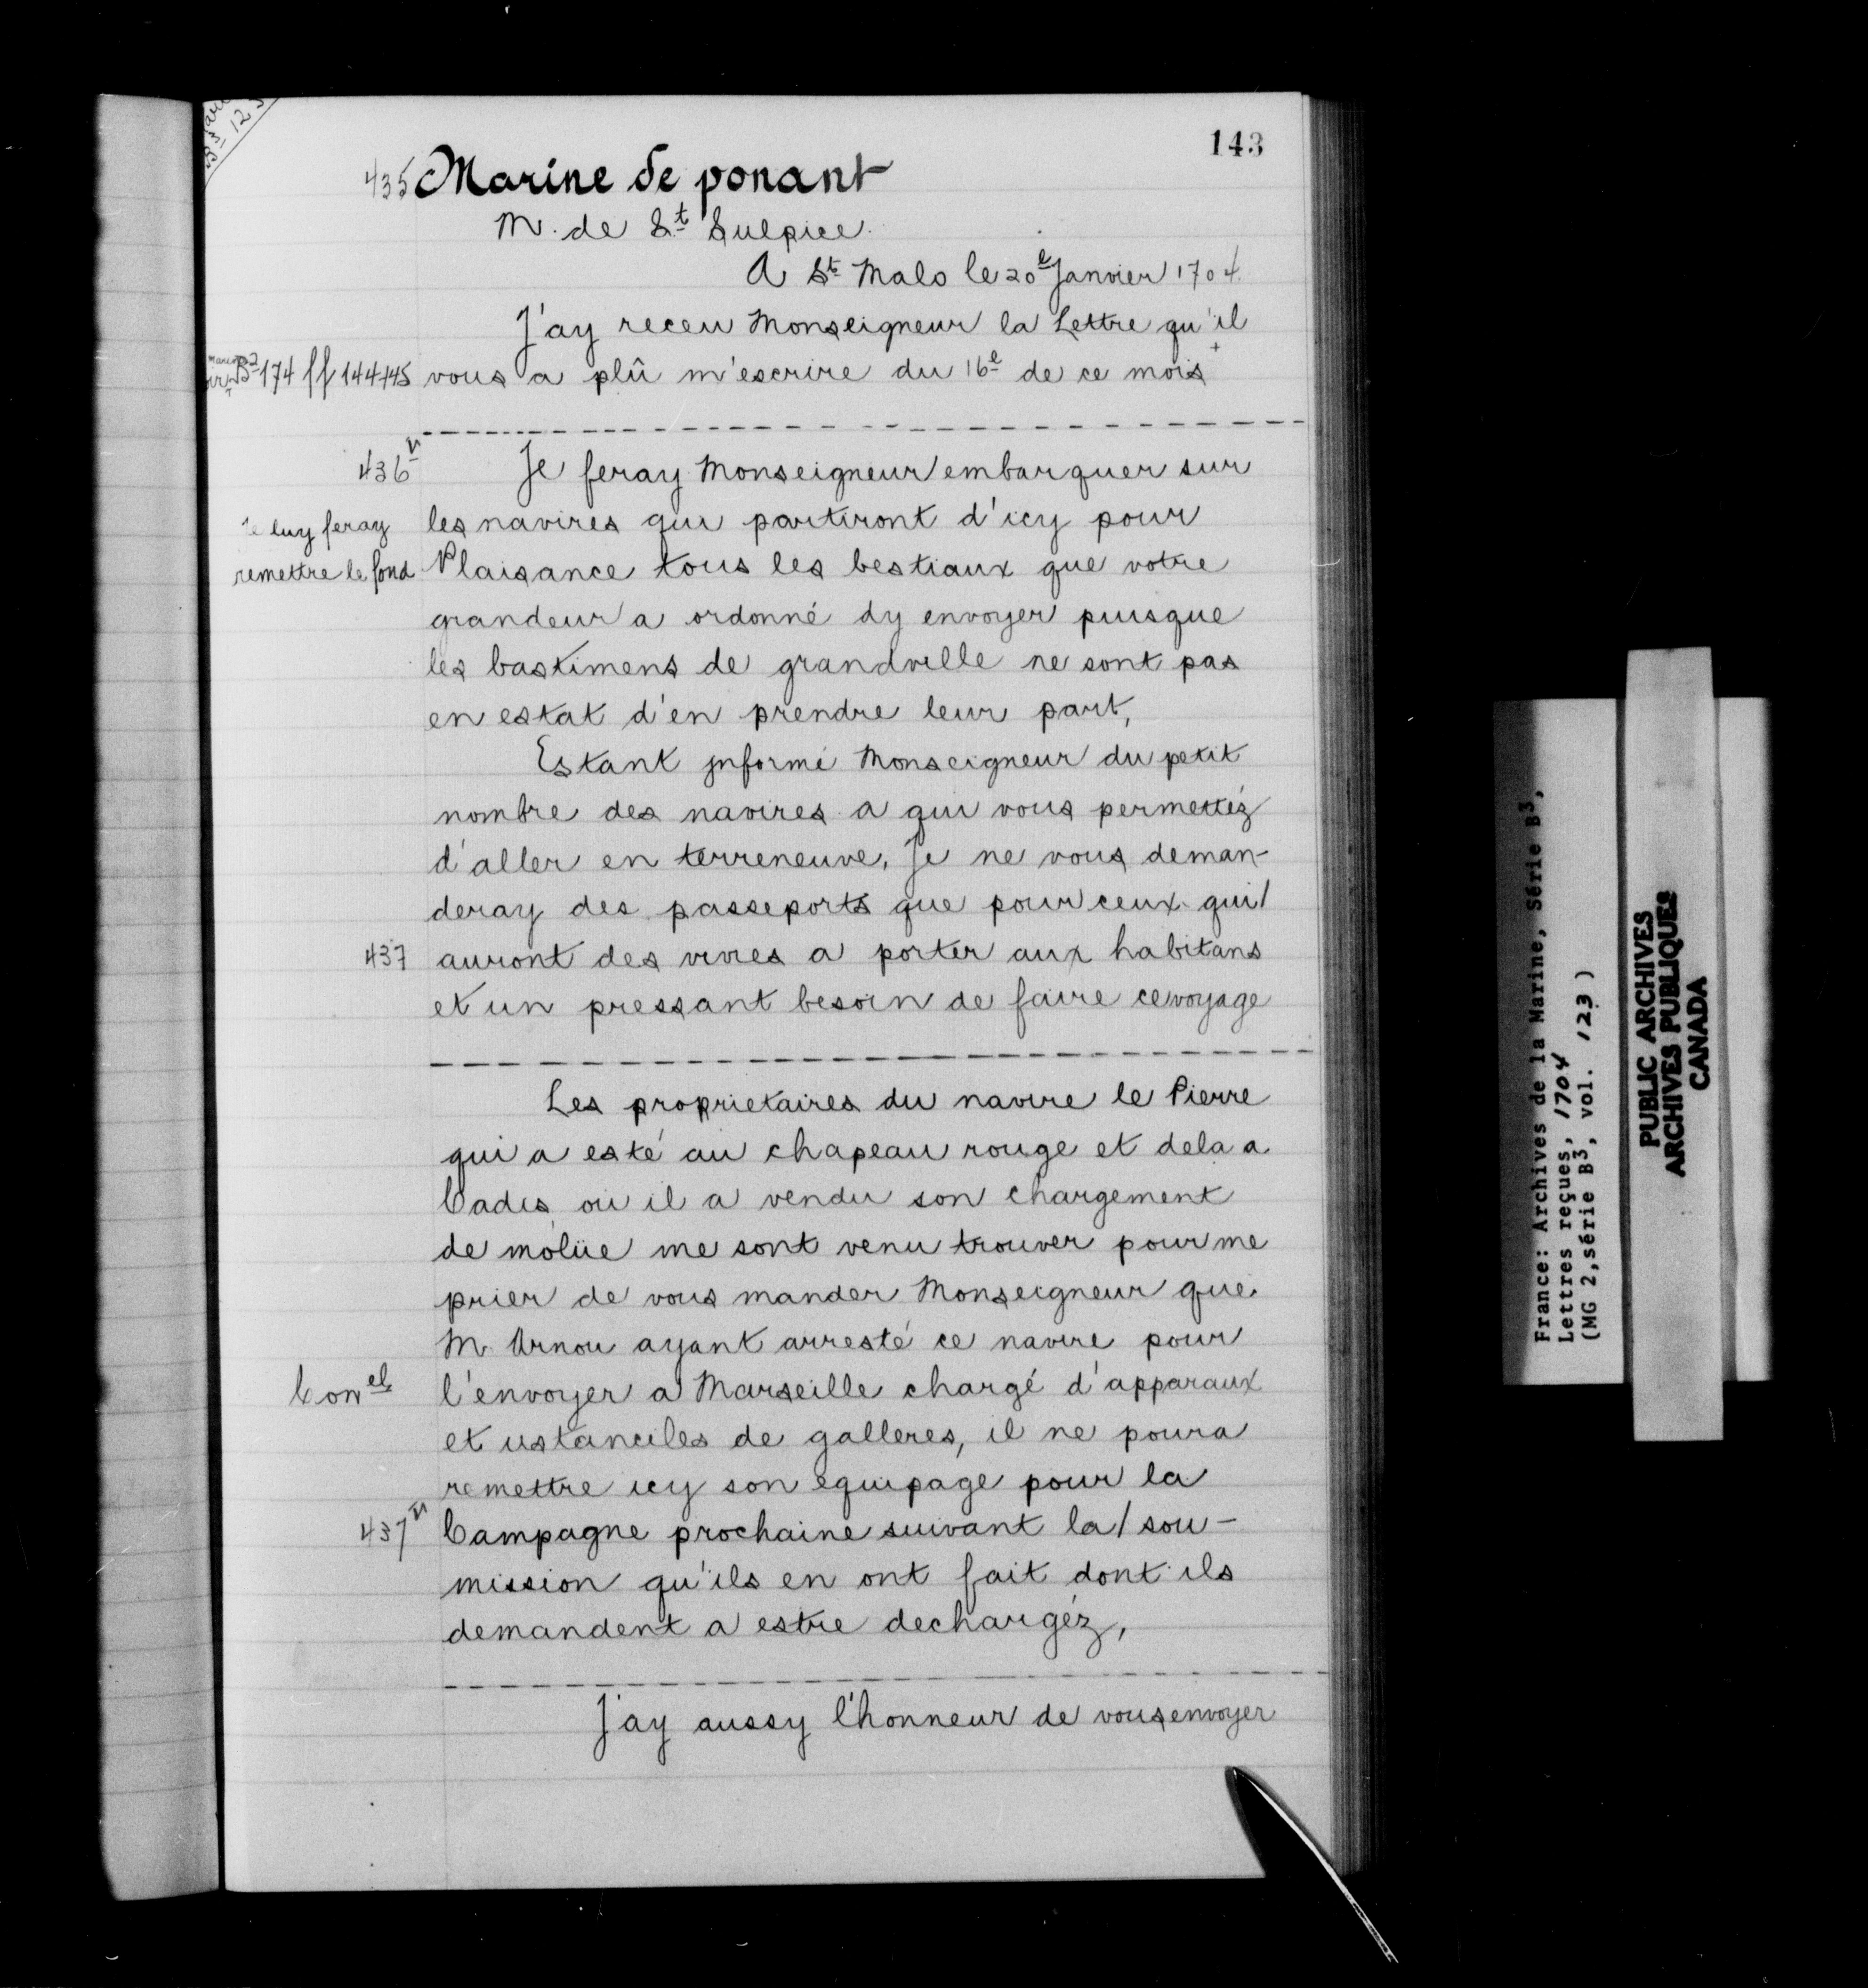 B3 123
143
435 Marine de ponant
M. de St Sulpice.
A St Malo le 20e Janvier 1704.
J'ay receu Monseigneur la Lettre qu'il
B2 174 ff 144-145 vous a plû m'escrire du 16e de ce mois +
436v Je feray Monseigneur embarquer sur
Je luy feray les navires qui partiront d'icy pour
remettre le fond Plaisance tous les bestiaux que votre
grandeur a ordonné dy envoyer puisque
les bastimens de grandville ne sont pas
en estat d'en prendre leur part,
Estant jnformé Monseigneur du petit
nombre des navires a qui vous permettéz
d'aller en terreneuve, Je ne vous deman-
deray des passeports que pour ceux qui/
437 auront des vivres a porter aux habitans
et un pressant besoin de faire ce voyage
Les proprietaires du navire le Pierre
qui a esté au chapeau rouge et dela a
Cadis ou il a vendu son chargement
de molüe me sont venu trouver pour me
prier de vous mander Monseigneur que
M. Arnou ayant arresté ce navire pour
Con el l'envoyer a Marseille chargé d'apparaux
et ustanciles de galleres, il ne poura
remettre icy son equipage pour la
437v Campagne prochaine suivant la/sou-
mission qu'ils en ont fait dont ils
demandent a estre dechargéz,
J'ay aussy l'honneur de vous envoyer
France: Archives de la Marine, Série B3,
Lettres reçues, 1704
(MG 2, série B3, vol. 123)
PUBLIC ARCHIVES
ARCHIVES PUBLIQUES
CANADA